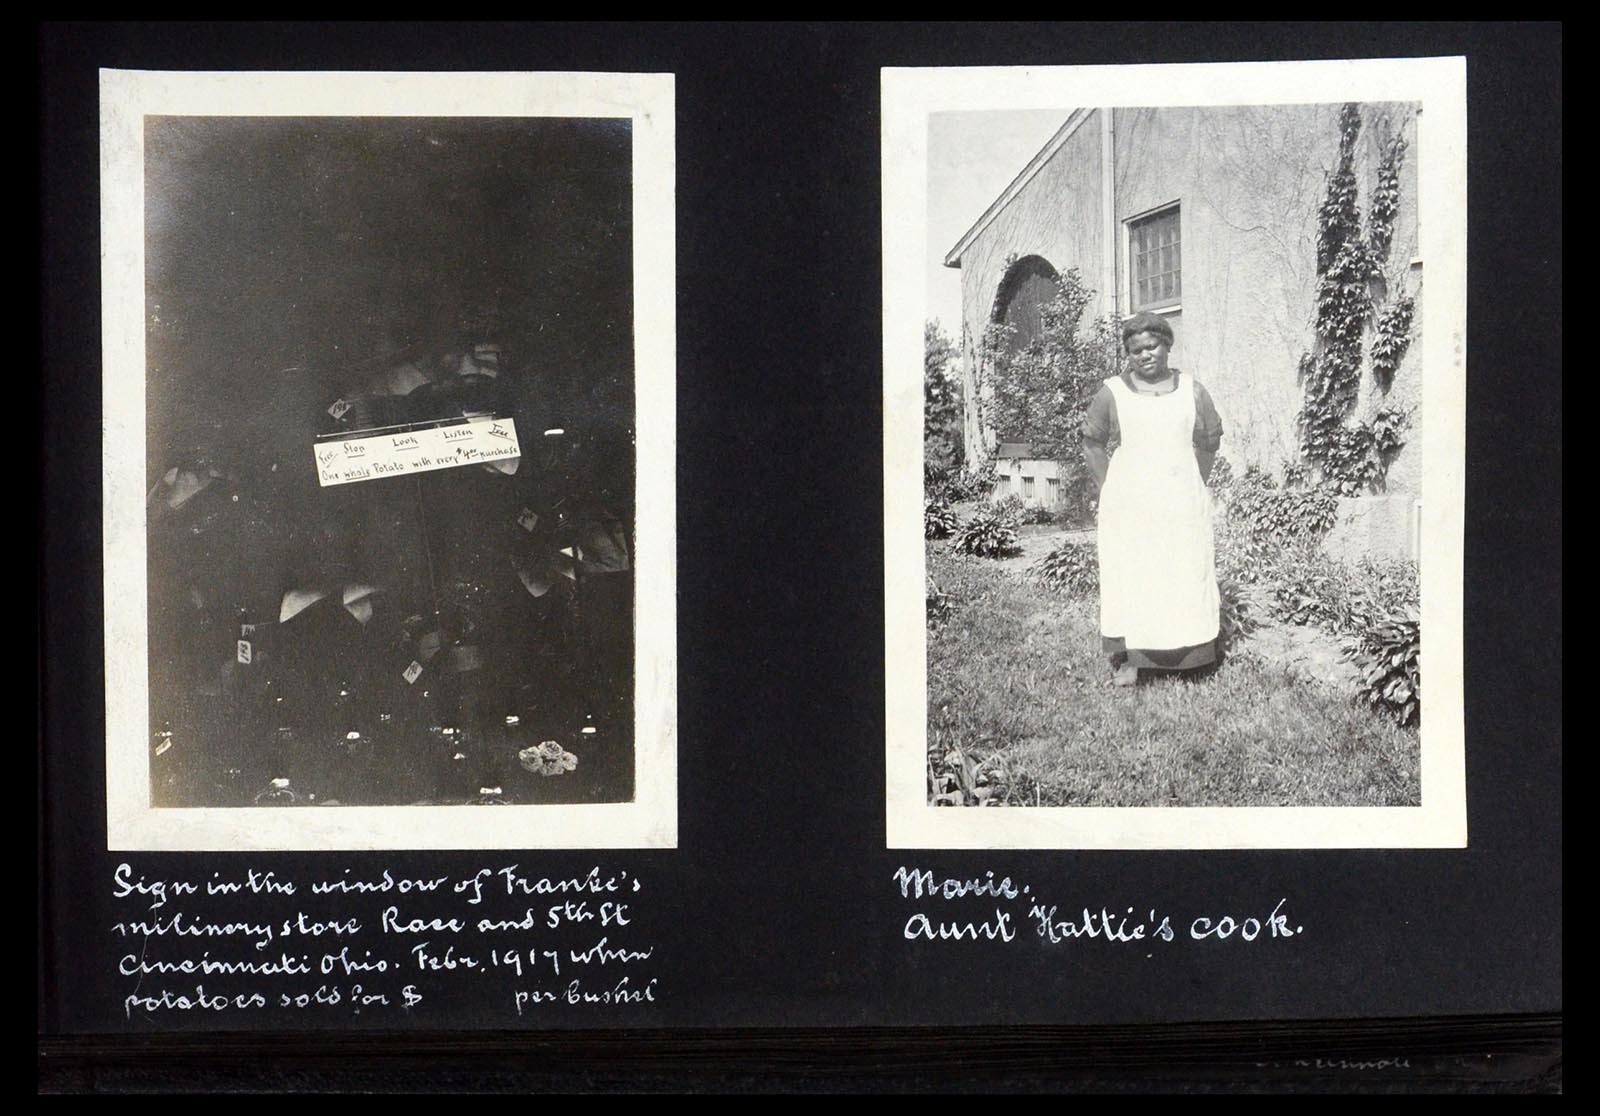 Free Stop Look - Listen Free
One whole Potato with every $4.00 purchase
198
Sign in the window of Franke's
milinery store Race and 5th St
Cincinnati Ohio. Febr. 1917 when
potatoes sold for $ per bushel
Marie.
Aunt Hattie's cook.